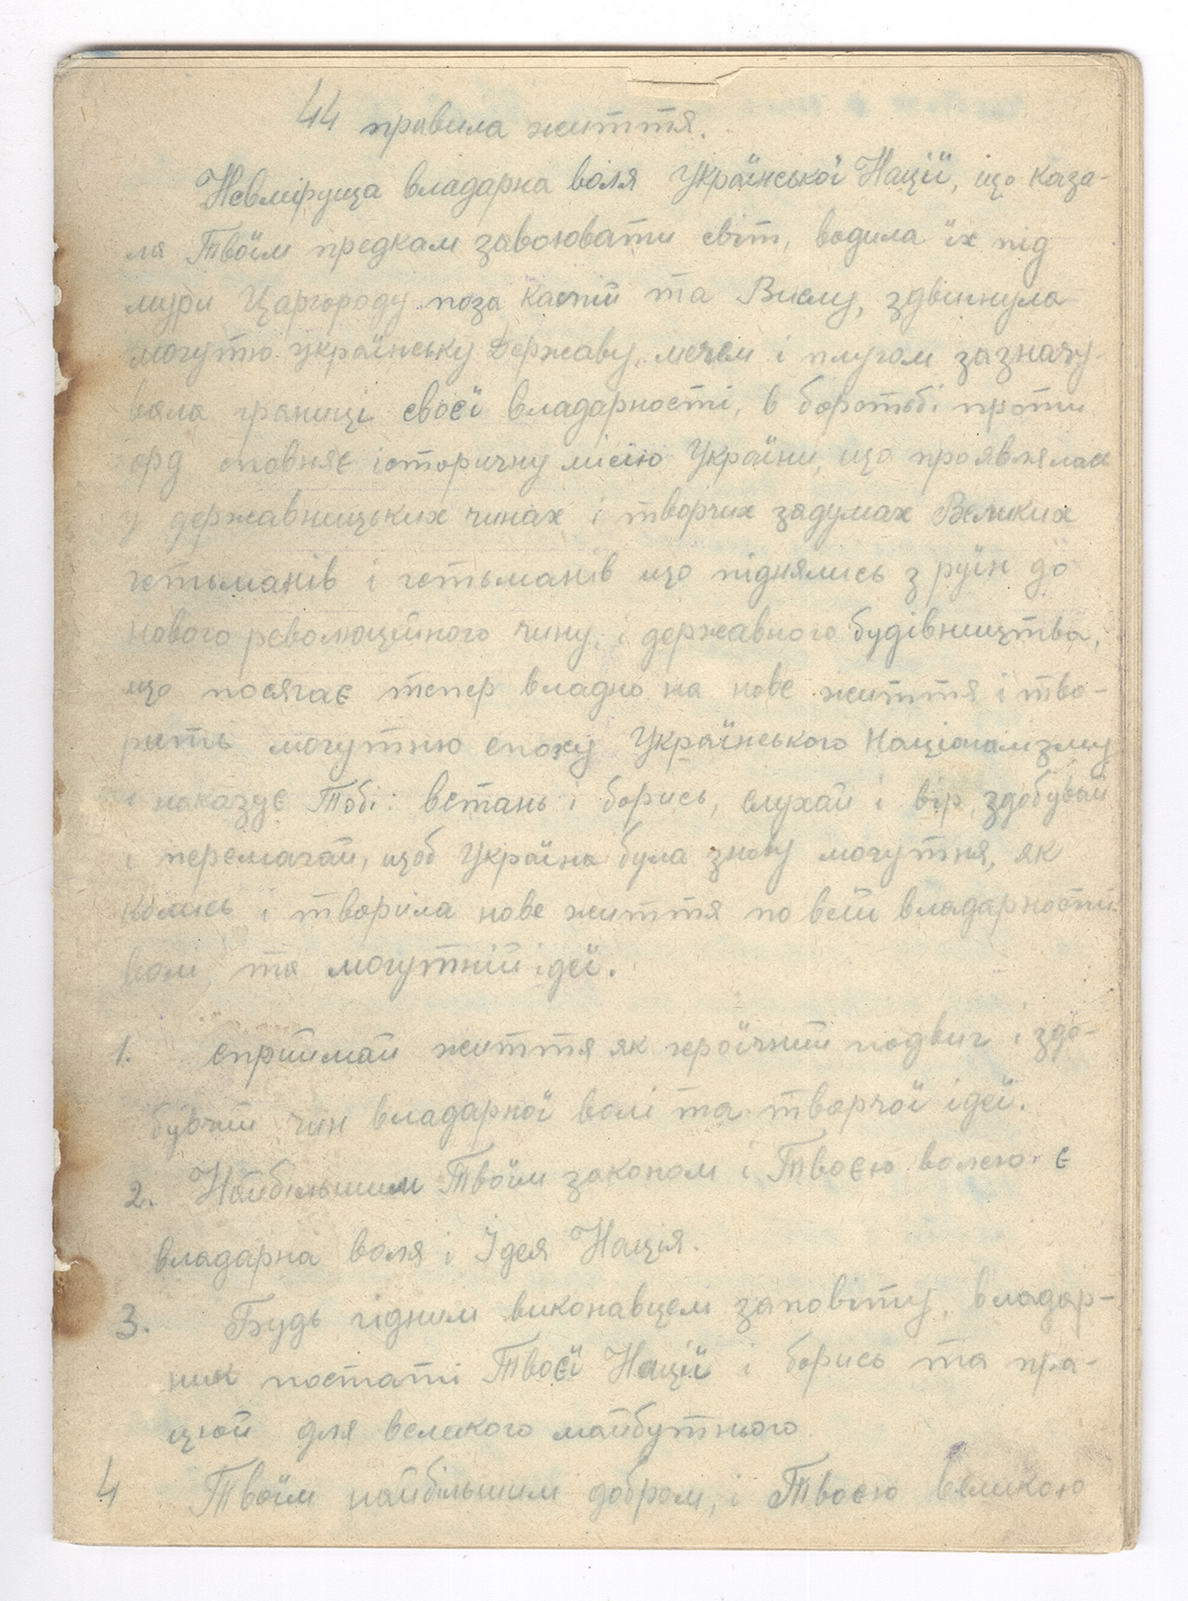 44 правила життя.
Невміруща владарна воля Української Нації, що каза-
ла Твоїм предкам завоювати світ, водила їх під
мури Царгороду поза Каспій та Вислу, здвигнула
могутню українську Державу, мечем і плугом зазначу-
вала границі своєї владарности, в боротьбі проти
орд сповняє історичну місію України, що проявлялась
у державницьких чинах і творчих задумах Великих
гетьманів і гетьманів що піднялись з руїн до
нового революційного чину, і державного будівництва,
що посягає тепер владно на нове життя і тво-
рить могутню епоху Українського Націоналізму
і наказує Тобі: встань і борись, слухай і вір, здобувай
і перемагай, щоб Україна була знову могутня, як
колись і творила нове життя по всій владарности
волі та могутній ідеї.
1. Сприймай життя як героїчний подвиг і здо-
бувчий чин владарної волі та творчої ідеї.
2. Найбільшим Твоїм законом і Твоєю волею є
владарна воля і Ідея Нація.
3. Будь гідним виконавцем заповіту, владар-
них постаті Твоєї Нації і борись та пра-
цюй для великого майбутнього
4 Твоїм найбільшим добром, і Твоєю великою